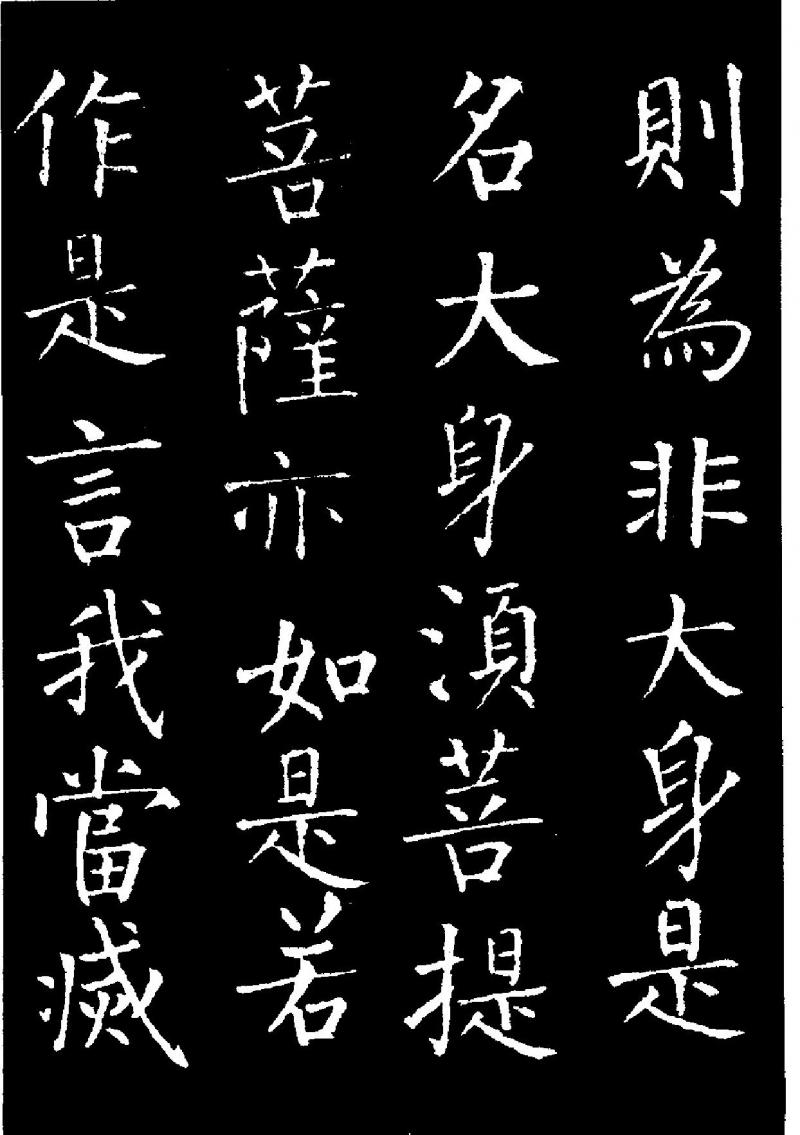 則為非大身是
名大身須菩提
菩薩亦如是若
作是言我當滅